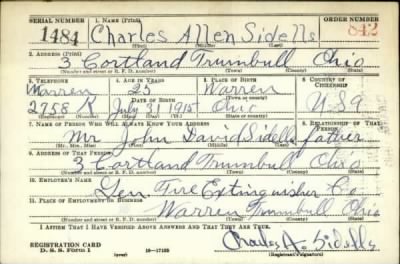 SERIAL NUMBER 1. NAME (Print) ORDER NUMBER
1484 Charles Allen Sidells 842
(First) (Middle) (Last)
2. ADDRESS (Print)
3 Cortland Trumbull Ohio
(Number and street or R. F. D. number) (Town) (County) (State)
3. TELEPHONE 4. AGE IN YEARS 5. PLACE OF BIRTH 6. COUNTRY OF CITIZENSHIP
Warren 25 Warren
DATE OF BIRTH (Town or county)
2958 R July 31 1915 Ohio U.S.A
(Mo.) (Day) (Yr.) (State or country)
7. NAME OF PERSON WHO WILL ALWAYS KNOW YOUR ADDRESS 8. RELATIONSHIP OF THAT PERSON
Mr John David Sidells father
(Mr., Mrs., Miss) (First) (Middle) (Last)
9. ADDRESS OF THAT PERSON
3 Cortland Trumbull Ohio
(Number and street or R. F. D. number) (Town) (County) (State)
10. EMPLOYER'S NAME
Gen Fire Extinguisher Co
11. PLACE OF EMPLOYMENT OR BUSINESS
Warren Trumbull Ohio
(Number and street or R. F. D. number) (Town) (County) (State)
I AFFIRM THAT I HAVE VERIFIED ABOVE ANSWERS AND THAT THEY ARE TRUE.
REGISTRATION CARD
D. S. S. Form 1 (over) Charles A. Sidells
(Registrant's signature)